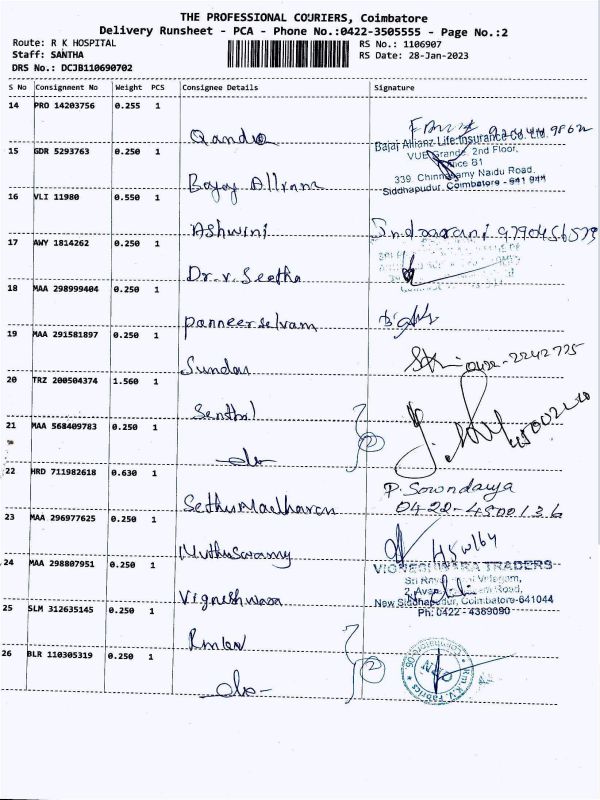 THE PROFESSIONAL COURIERS, Coimbatore
Delivery Runsheet - PCA - Phone No.:0422-3505555 - Page No.:2
Route: R K HOSPITAL RS No.: 1106907
Staff: SANTHA RS Date: 28-Jan-2023
DRS No.: DCJB110690702
S No Consignment No Weight PCS Consignee Details Signature
14 PRO 14203756 0.255 1
Bajaj Allianz Life Insurance Co. Ltd.
VUE Grande, 2nd Floor,
15 GDR 5293763 0.250 1 B1
339, Chinnaswamy Naidu Road,
Bajaj Allianz Siddhapudur, Coimbatore - 641 044
16 VLI 11980 0.550 1
Ashwini 9790456579
17 AWY 1814262 0.250 1
Dr. V. Seetha
18 MAA 298999404 0.250 1
Panneerselvam
19 MAA 291581897 0.250 1
Sundar 0422-2242775
20 TRZ 200504374 1.560 1
Senthil
21 MAA 568409783 0.250 1 2
-do-
22 HRD 711982618 0.630 1 P. Sowndarya
Sethu Madhavan 0422-4500136
23 MAA 296977625 0.250 1
Muthuswamy
24 MAA 298807951 0.250 1 VIGNESHWARA TRADERS
Vigneshwara New Siddhapudur, Coimbatore-641044
Ph: 0422 - 4389090
25 SLM 312635145 0.250 1
26 BLR 110305319 0.250 1 2
-do-